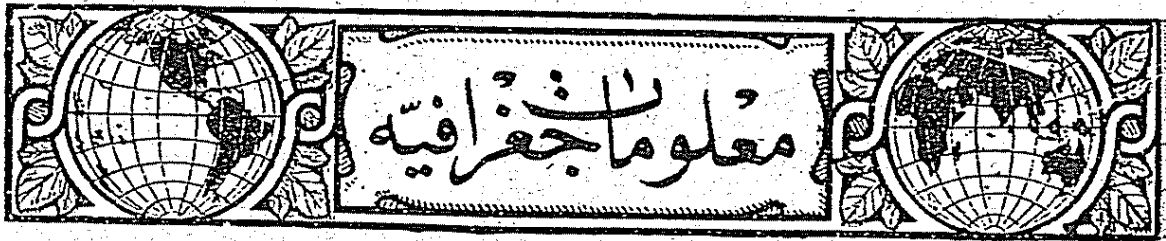 معلومات جغرافيّه